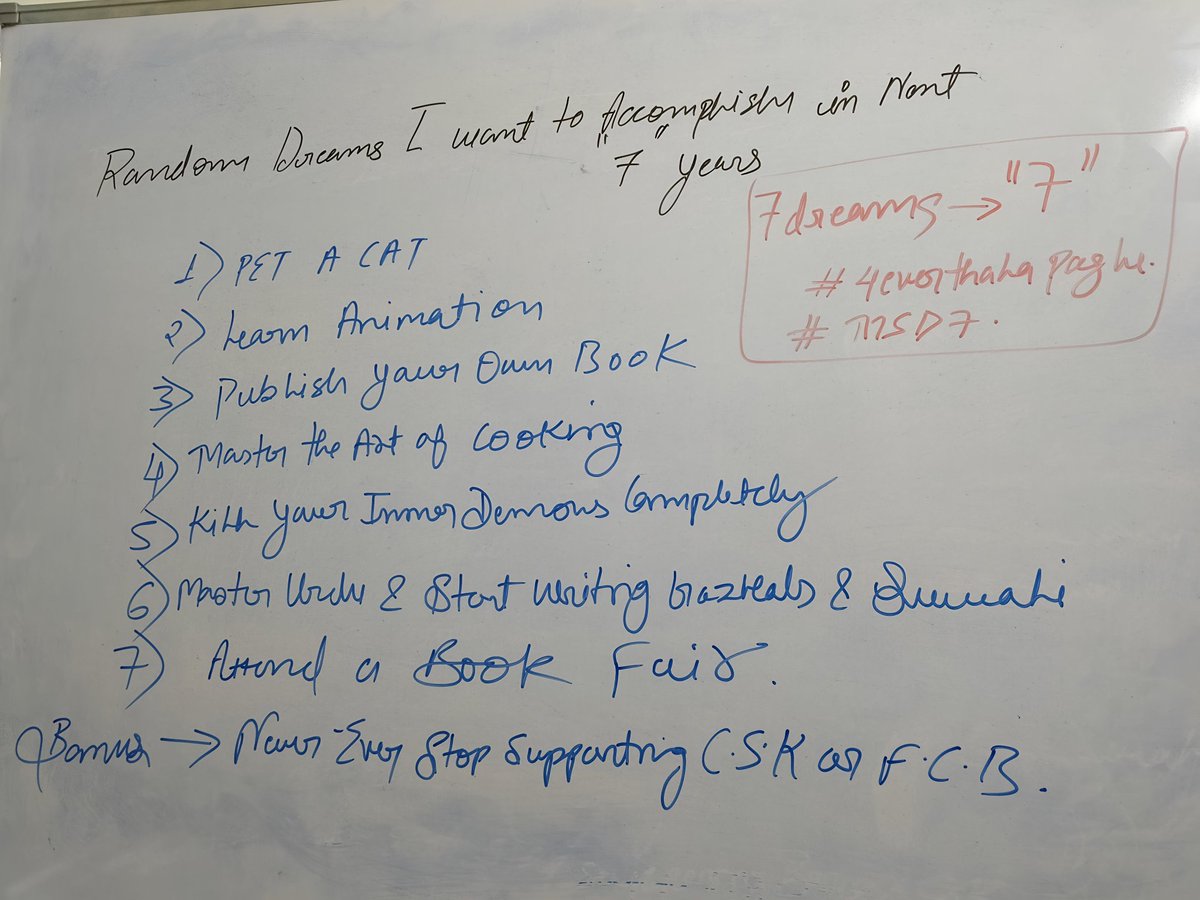 Random Dreams I want to Accomplish in Next
"7" years
7 dreams → "7"
# 4everthala paghe.
# MSD 7.
1) PET A CAT
2) Learn Animation
3) Publish your Own Book
4) Master the Art of Cooking
5) Kill your Inner Demons Completely
6) Master Urdu & Start writing Gazheals &
7) Attend a Book Fair.
Bonus → Never-Ever Stop Supporting C.S.K or F.C.B.